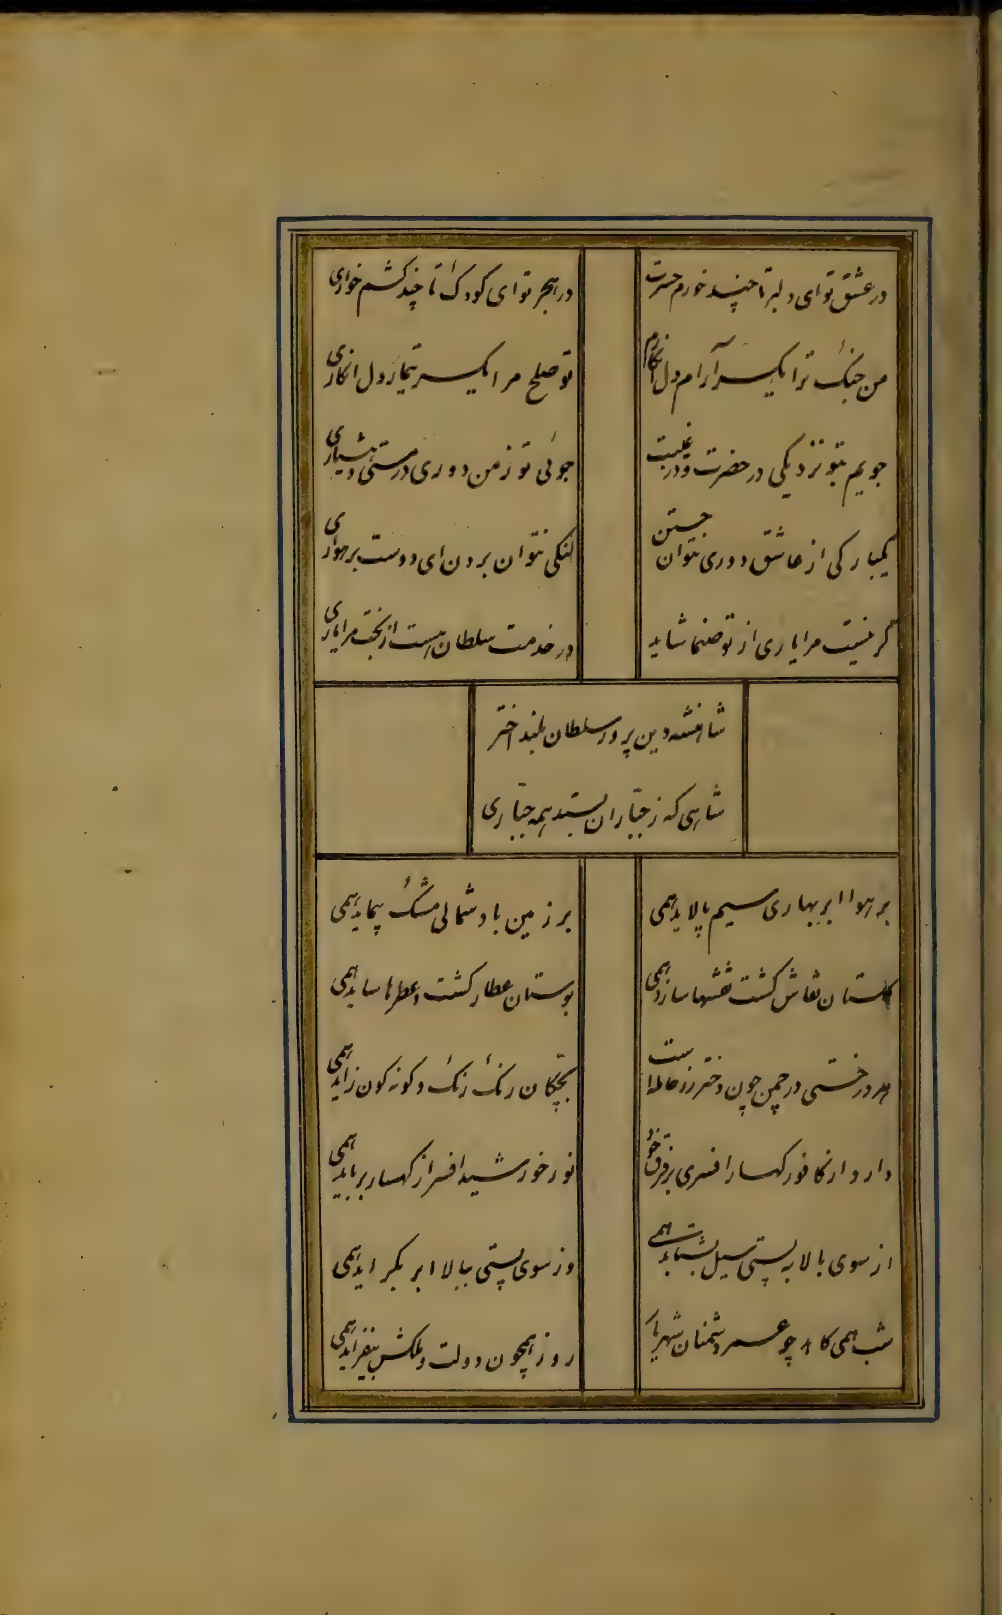 در عشق تو ای دلبر تا چند خورم حسرت
در هجر تو ای کودک تا چند کشم خواری
من جنگ ترا یکسر آرام دل انکارم
تو صلح مرا یکسر تیمار دل انکاری
جویم بتو نزدیکی در حضرت و در غیبت
جوئی تو ز من دوری در مستی و هشیاری
یکبارکی از عاشق دوری نتوان جستن
لنکی نتوان بردن ای دوست برهواری
گر نیست مرا یاری از تو صنما شاید
در خدمت سلطان هست از بخت مرا یاری
شاهنشه دین پرور سلطان بلند اختر
شاهی که ز جبّاران بستد همه جبّاری
بر هوا ابر بهاری سیم پالاید همی
بر زمین باد شمالی مشک پیماید همی
کلستان نقاش کشت نقشها سازد همی
بوستان عطار کشت و عطرها ساید همی
هر درختی در چمن چون دختر رز حامله است
بچّکان رنگ رنگ و کونه کون زاید همی
دارد از کافور کهسار افسری بر فرق خود
نور خورشید افسر از کهسار برباید همی
از سوی بالا به پستی سیل بشتابد همی
وز سوی پستی ببالا ابر بکراید همی
شب همی کاهد چو عمر دشمنان شهریار
روز همچون دولت و ملکش بیفزاید همی